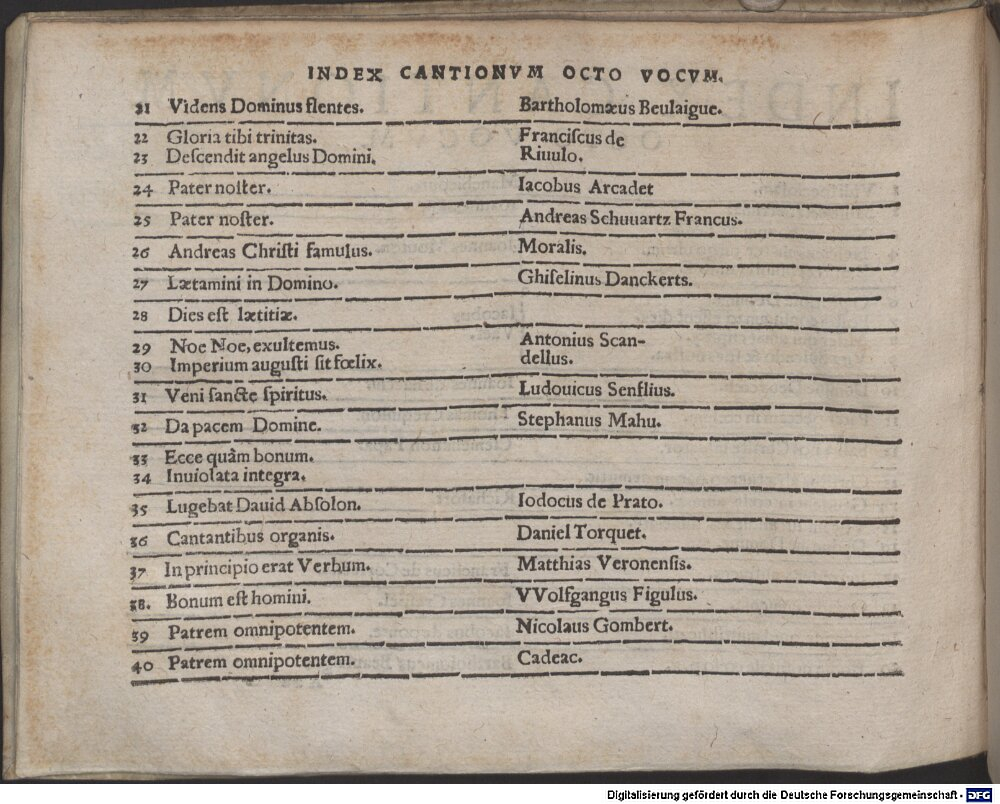 INDEX CANTIONVM OCTO VOCVM.
21 Videns Dominus flentes. Bartholomæus Beulaigue.
22 Gloria tibi trinitas. Franciſcus de
23 Deſcendit angelus Domini. Riuulo.
24 Pater noſter. Iacobus Arcadet
25 Pater noſter. Andreas Schuuartz Francus.
26 Andreas Chriſti famulus. Moralis.
27 Lætamini in Domino. Ghiſelinus Danckerts.
28 Dies eſt lætitiæ.
29 Noe Noe, exultemus. Antonius Scan-
30 Imperium auguſti ſit fœlix. dellus.
31 Veni ſancte ſpiritus. Ludouicus Senflius.
32 Da pacem Domine. Stephanus Mahu.
33 Ecce quâm bonum.
34 Inuiolata integra.
35 Lugebat Dauid Abſolon. Iodocus de Prato.
36 Cantantibus organis. Daniel Torquet.
37 In principio erat Verbum. Matthias Veronenſis.
38. Bonum eſt homini. VVolfgangus Figulus.
39 Patrem omnipotentem. Nicolaus Gombert.
40 Patrem omnipotentem. Cadeac.
Digitalisierung gefördert durch die Deutsche Forschungsgemeinschaft - DFG